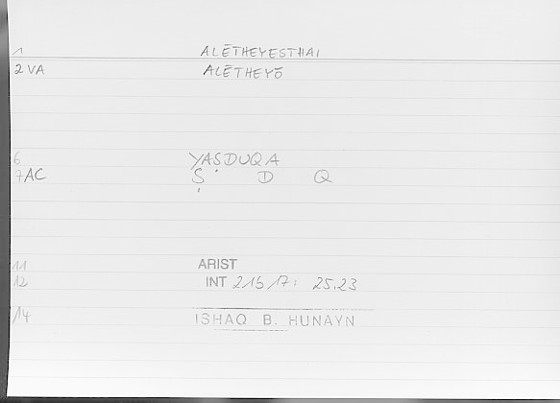 1 ALĒTHEYESTHAI
2 VA ALĒTHEYŌ
6 YAṢDUQA
7 AC Ṣ D Q
11 ARIST
12 INT 21b17: 25.23
14 ISHAQ B. HUNAYN